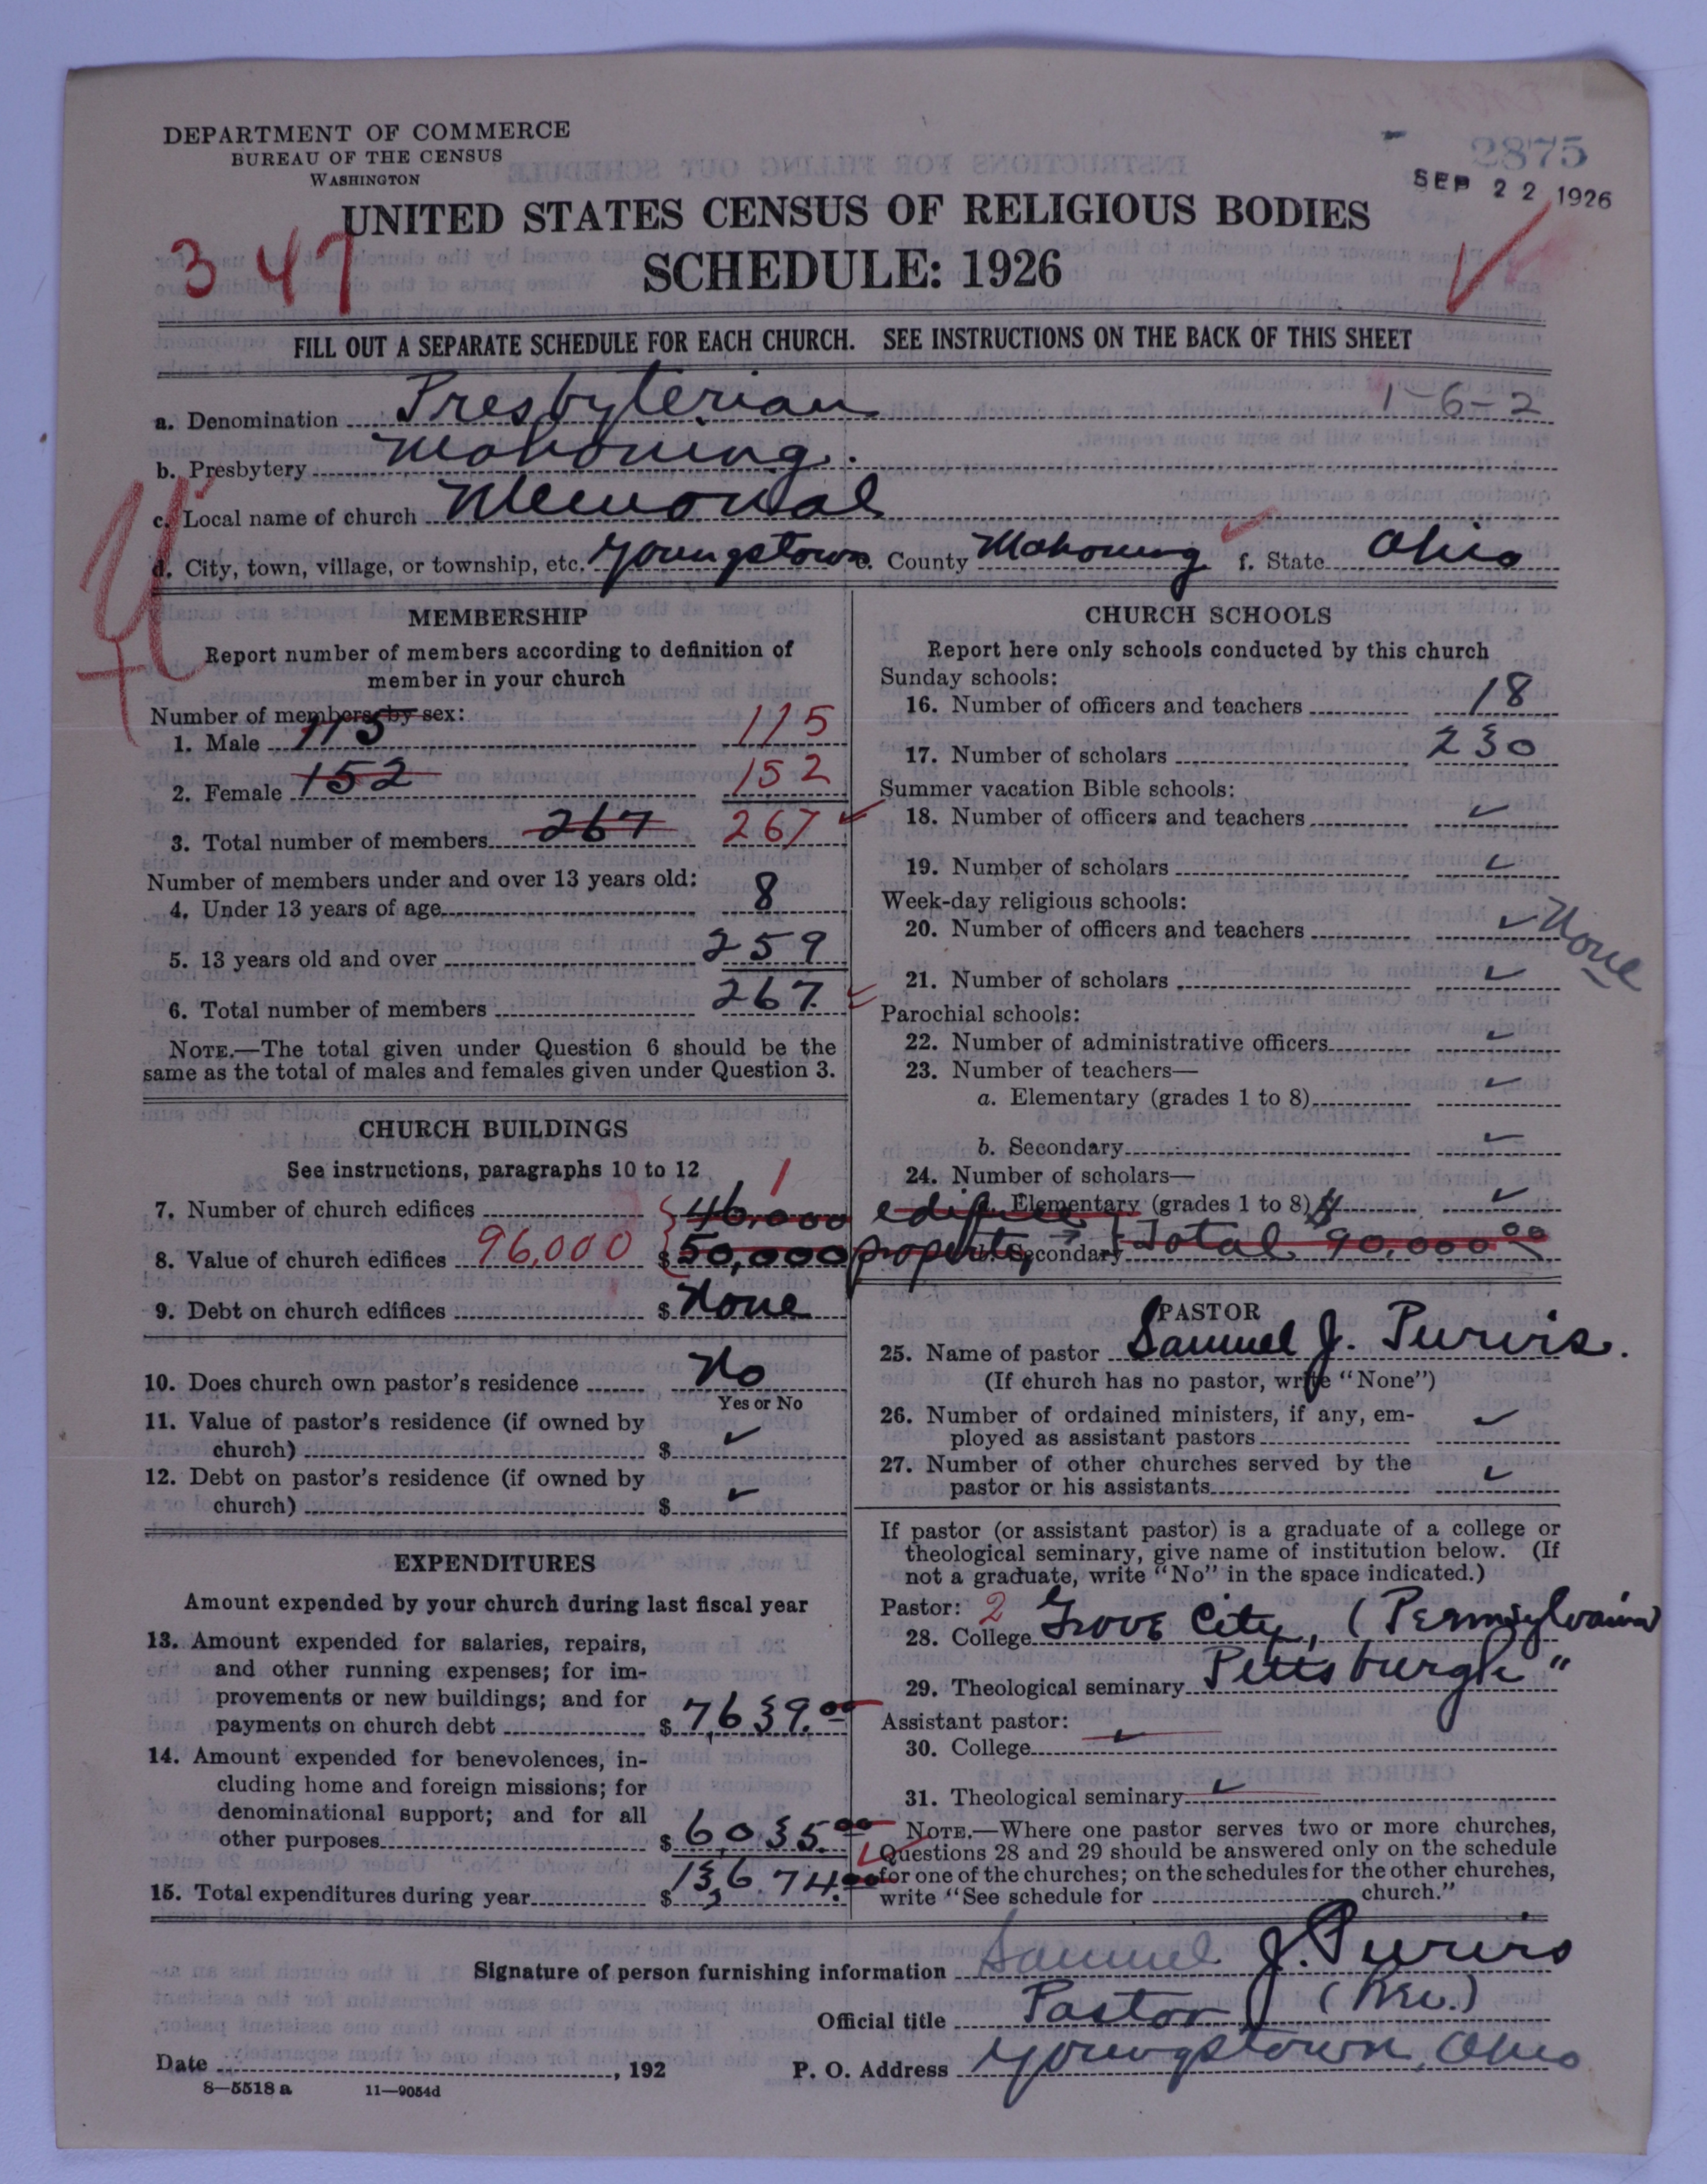 DEPARTMENT OF COMMERCE
BUREAU OF THE CENSUS
WASHINGTON
2875
SEP 22 1926
UNITED STATES CENSUS OF RELIGIOUS BODIES
347
SCHEDULE: 1926
FILL OUT A SEPARATE SCHEDULE FOR EACH CHURCH. SEE INSTRUCTIONS ON THE BACK OF THIS SHEET
a. Denomination Presbyterian 1-6-2
b. Presbytery Mahoning.
c. Local name of church Memorial
d. City, town, village, or township, etc. Youngstown e. County Mahoning f. State Ohio
MEMBERSHIP
Report number of members according to definition of
member in your church
Number of members by sex:
1. Male 115 115
2. Female 152 152
3. Total number of members 267 267
Number of members under and over 13 years old:
4. Under 13 years of age 8
5. 13 years old and over 259
6. Total number of members 267
NOTE.—The total given under Question 6 should be the
same as the total of males and females given under Question 3.
CHURCH BUILDINGS
See instructions, paragraphs 10 to 12
7. Number of church edifices 1 46,000 edifice
8. Value of church edifices 96,000 $ 50,000 property Total 90,000 00
9. Debt on church edifices $ None
10. Does church own pastor's residence No
Yes or No
11. Value of pastor's residence (if owned by
church) $ ✓
12. Debt on pastor's residence (if owned by
church) $ ✓
EXPENDITURES
Amount expended by your church during last fiscal year
13. Amount expended for salaries, repairs,
and other running expenses; for im-
provements or new buildings; and for
payments on church debt $ 7,639.00
14. Amount expended for benevolences, in-
cluding home and foreign missions; for
denominational support; and for all
other purposes $ 6,035.00
15. Total expenditures during year $ 13,674.00
CHURCH SCHOOLS
Report here only schools conducted by this church
Sunday schools:
16. Number of officers and teachers 18
17. Number of scholars 230
Summer vacation Bible schools:
18. Number of officers and teachers ✓
19. Number of scholars ✓
Week-day religious schools:
20. Number of officers and teachers ✓ None
21. Number of scholars ✓
Parochial schools:
22. Number of administrative officers ✓
23. Number of teachers—
a. Elementary (grades 1 to 8) ✓
b. Secondary ✓
24. Number of scholars—
a. Elementary (grades 1 to 8) ✓
b. Secondary
PASTOR
25. Name of pastor Samuel J. Purvis.
(If church has no pastor, write "None")
26. Number of ordained ministers, if any, em-
ployed as assistant pastors ✓
27. Number of other churches served by the
pastor or his assistants ✓
If pastor (or assistant pastor) is a graduate of a college or
theological seminary, give name of institution below. (If
not a graduate, write "No" in the space indicated.)
Pastor: 2
28. College Grove City, (Pennsylvania)
29. Theological seminary Pittsburgh "
Assistant pastor:
30. College ✓
31. Theological seminary ✓
NOTE.—Where one pastor serves two or more churches,
Questions 28 and 29 should be answered only on the schedule
for one of the churches; on the schedules for the other churches,
write "See schedule for church."
Signature of person furnishing information Samuel J. Purvis
Official title Pastor (Rev.)
Date , 192 P. O. Address Youngstown, Ohio
8—5518 a 11—9054d